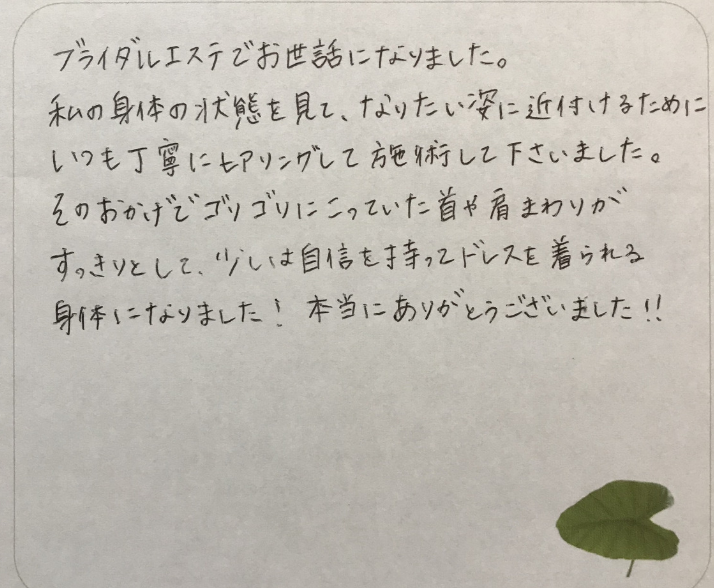 ブライダルエステでお世話になりました。
私の身体の状態を見て、なりたい姿に近付けるために
いつも丁寧にヒアリングして施術して下さいました。
そのおかげでゴリゴリにこっていた首や肩まわりが
すっきりとして、少しは自信を持ってドレスを着られる
身体になりました! 本当にありがとうございました!!